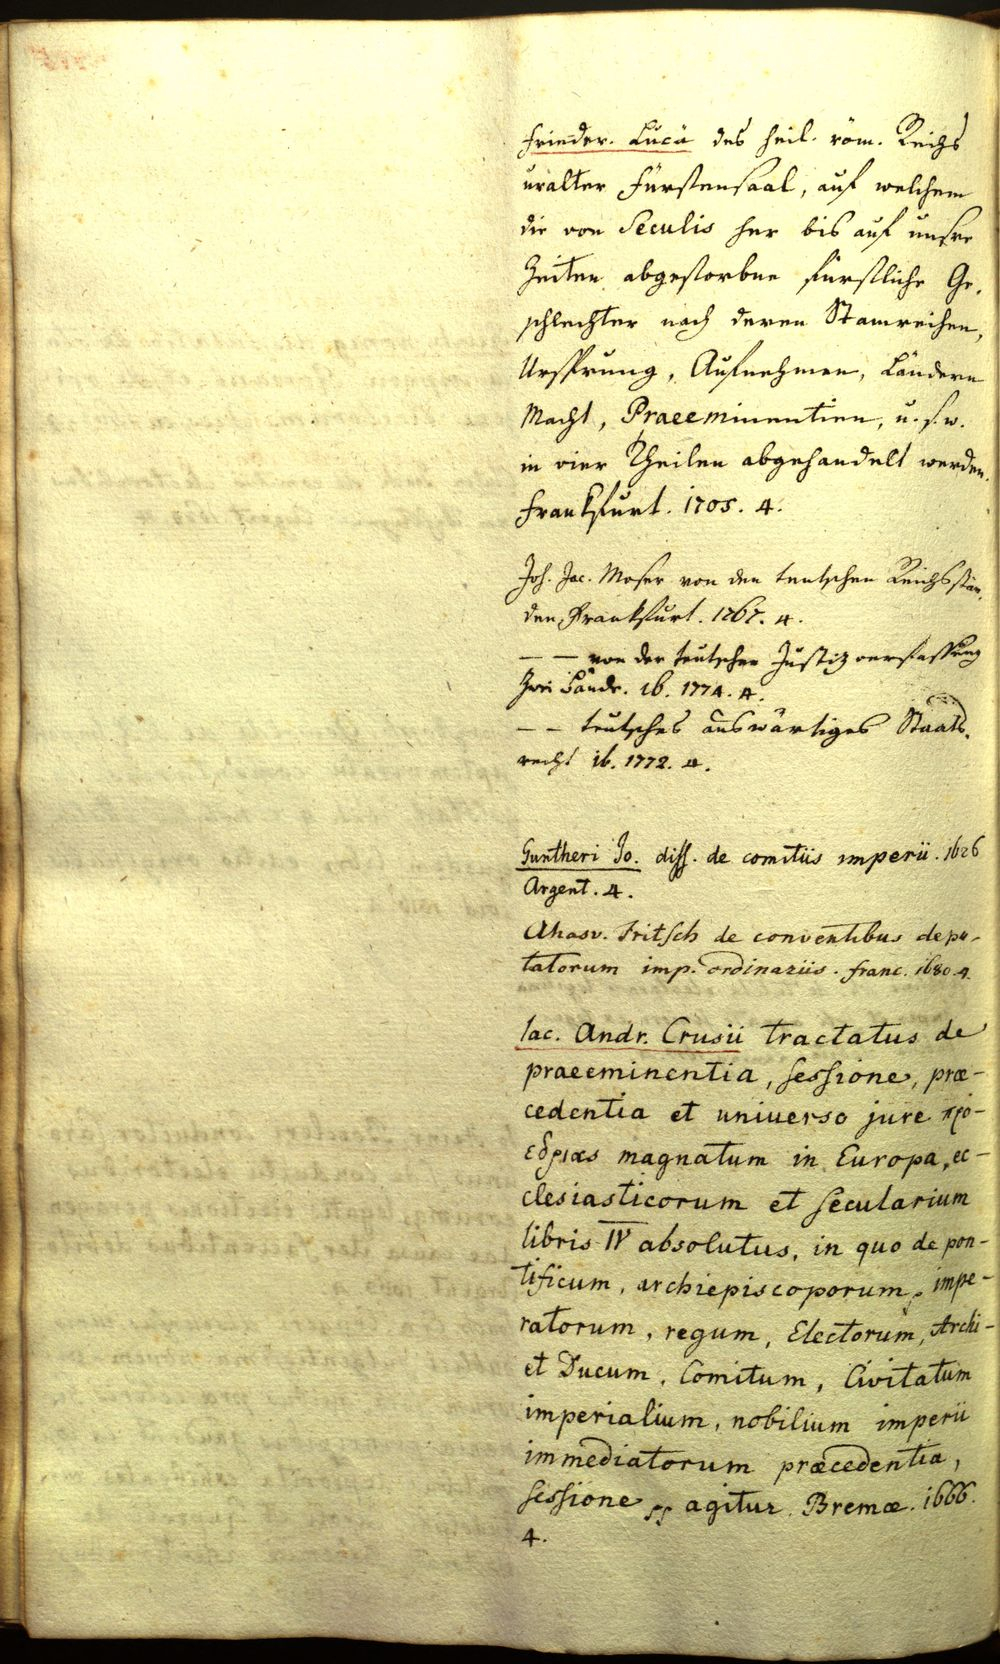 Frieder. Lucä des heil. röm. Reichs
uralter Fürstensaal, auf welchem
die von Seculis her bis auf unsre
Zeiten abgestorbne fürstliche Ge-
schlechter nach deren Stamreihen,
Ursprung, Aufnehmen, Ländern
Macht, Praeeminentien, u. s. w.
in vier Theilen abgehandelt werden.
Frankfurt. 1705. 4.
Joh. Jac. Moser von den teutschen Reichsstän-
den, Frankfurt. 1767. 4.
— — von der teutschen Justizverfassung
Zwei Bände. ib. 1774. 4.
— — teutsches auswärtiges Staats-
recht ib. 1772. 4.
Guntheri Jo. diss. de comitiis imperii. 1626
Argent. 4.
Ahasv. Fritsch de conventibus depu-
tatorum imp. ordinariis. franc. 1680. 4.
Iac. Andr. Crusii tractatus de
praeeminentia, sessione, præ-
cedentia et universo jure προ-
εδριας magnatum in Europa, ec-
clesiasticorum et secularium
libris IV absolutus, in quo de pon-
tificum, archiepiscoporum, impe-
ratorum, regum, Electorum, Archi-
et Ducum, Comitum, Civitatum
imperialium, nobilium imperii
immediatorum præcedentia,
sessione pp agitur. Bremæ. 1666.
4.